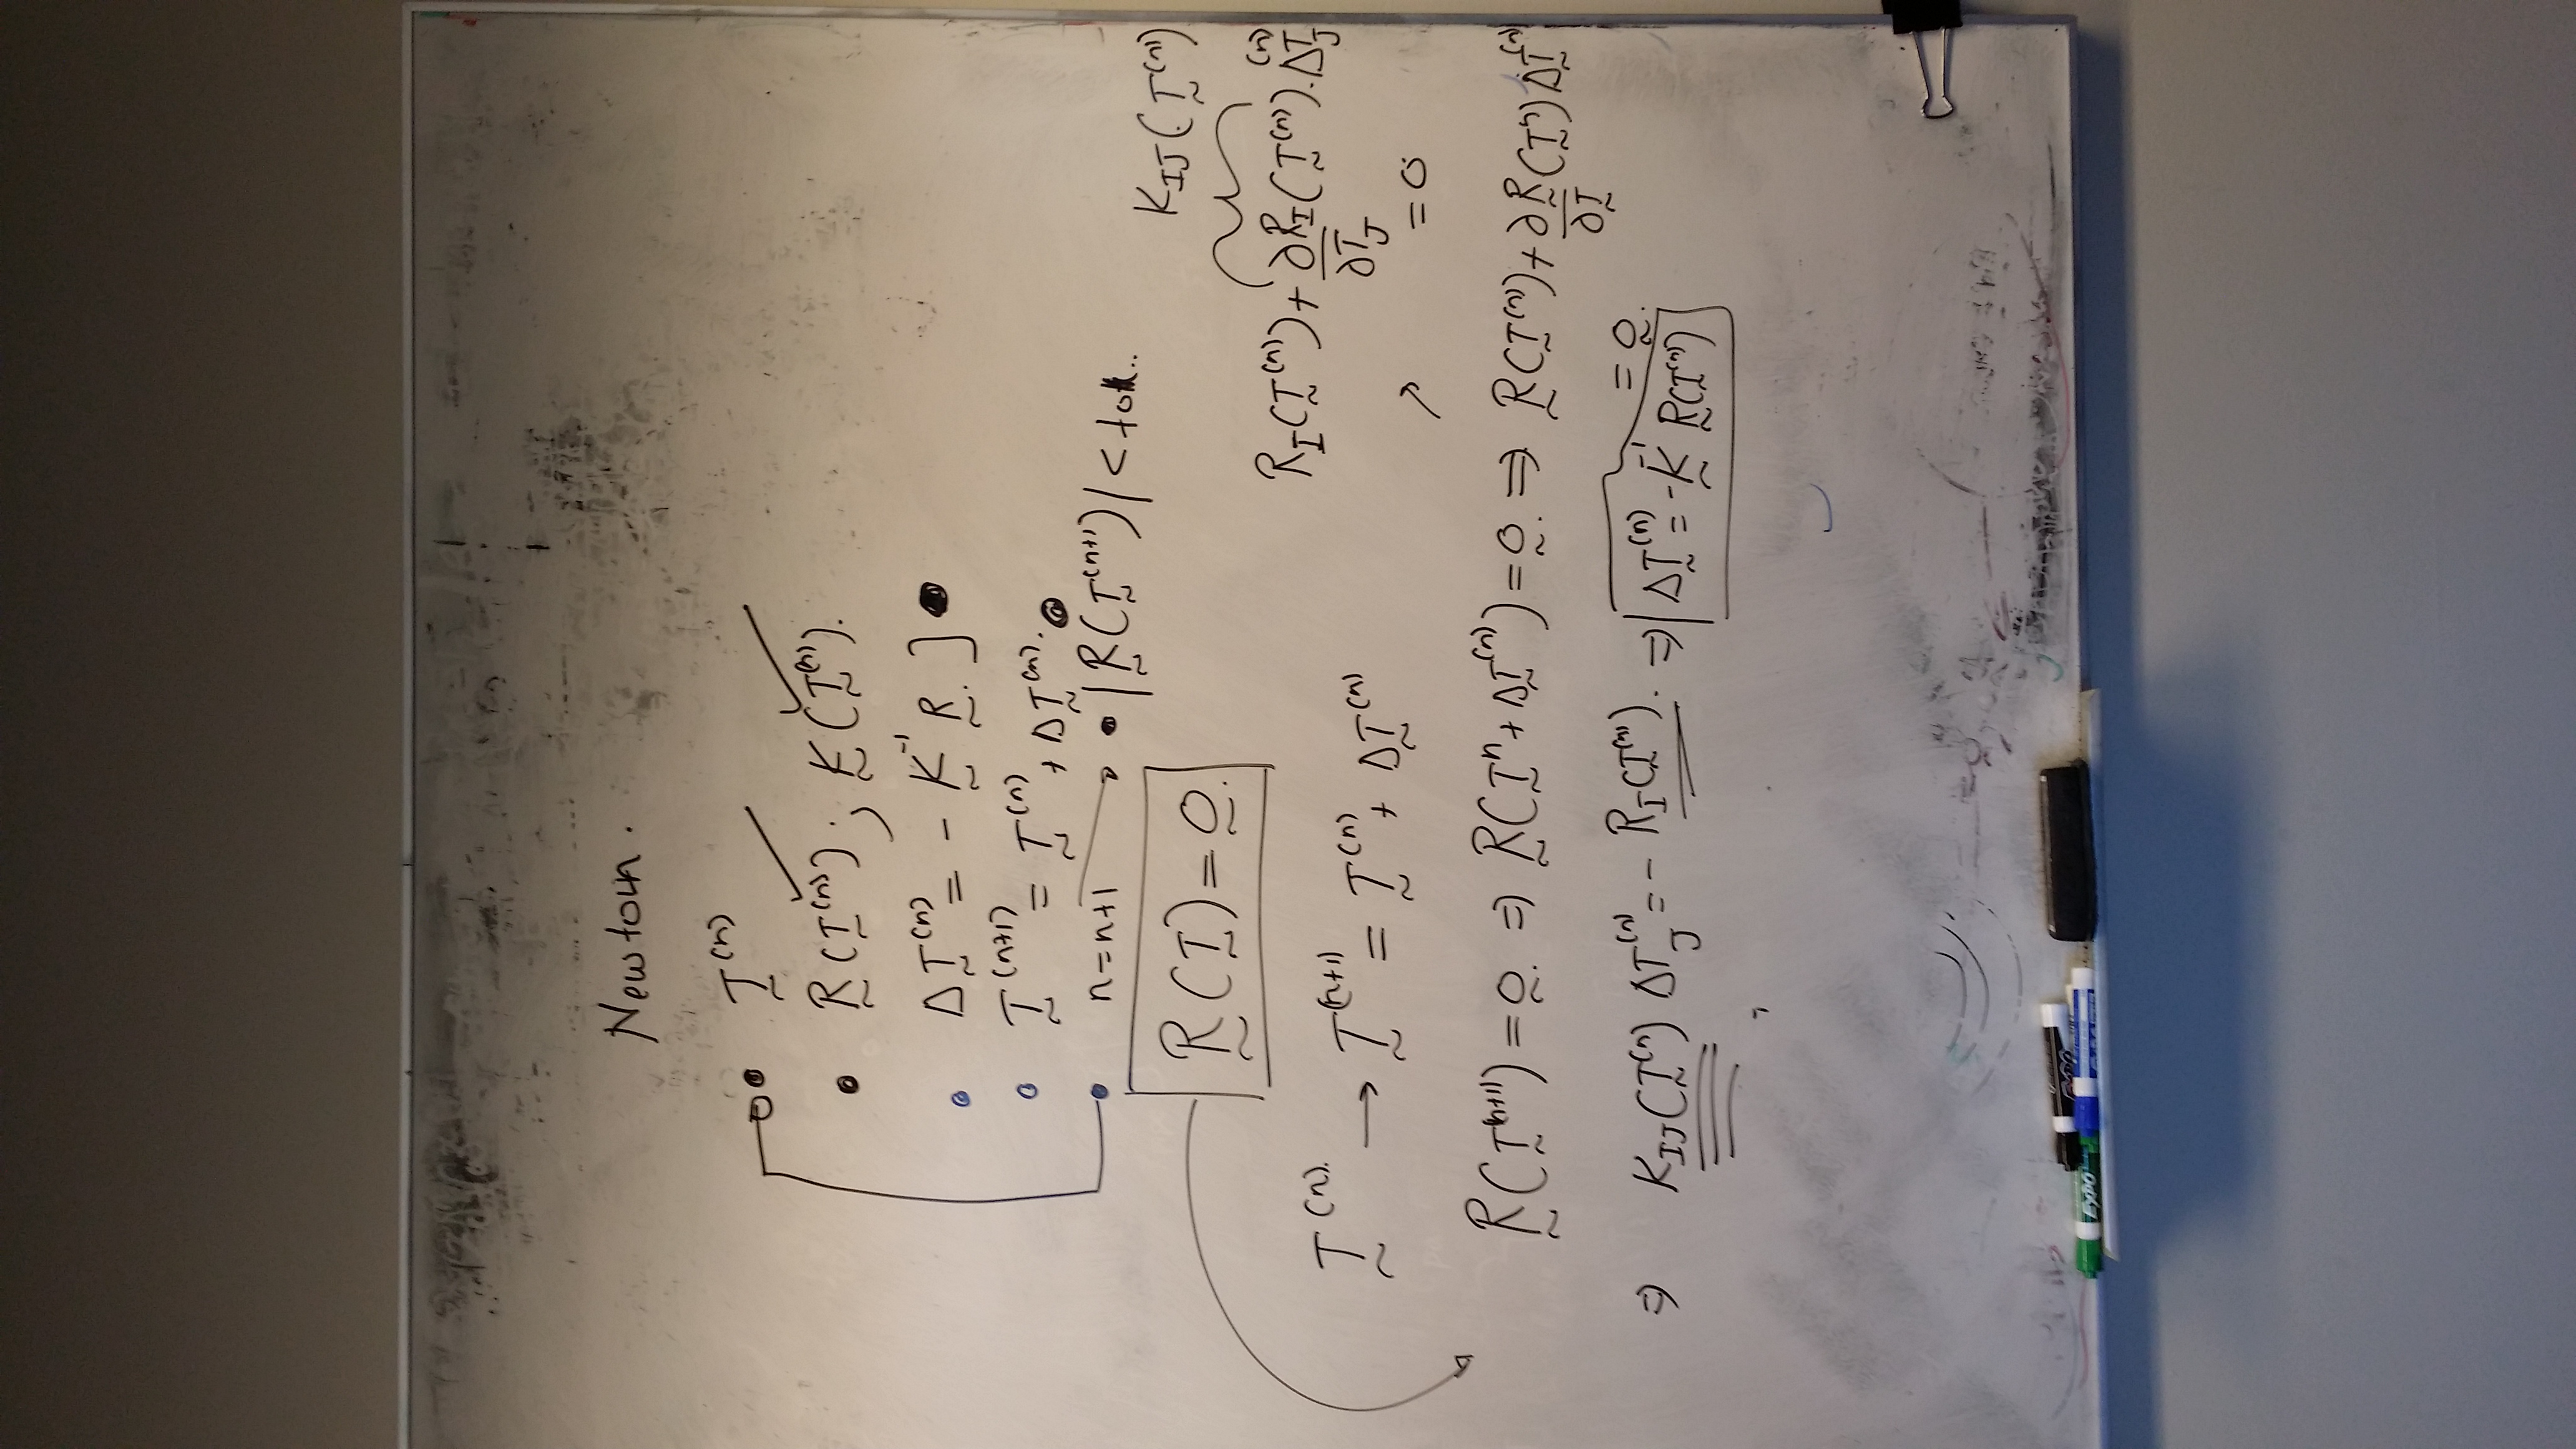 Newton.
T̰⁽ⁿ⁾
R̰(T̰⁽ⁿ⁾) ; K̰(T̰⁽ⁿ⁾).
ΔT̰⁽ⁿ⁾ = - K̰⁻¹ R̰. ]
T̰⁽ⁿ⁺¹⁾ = T̰⁽ⁿ⁾ + ΔT̰⁽ⁿ⁾.
n=n+1 → |R̰(T̰⁽ⁿ⁺¹⁾)| < tol..
R̰(T̰) = 0̰.
K_IJ(T̰⁽ⁿ⁾)
R_I(T̰⁽ⁿ⁾) + ∂R_I/∂T_J (T̰⁽ⁿ⁾).ΔT_J⁽ⁿ⁾
= 0
T̰⁽ⁿ⁾. → T̰⁽ⁿ⁺¹⁾ = T̰⁽ⁿ⁾ + ΔT̰⁽ⁿ⁾
R̰(T̰⁽ⁿ⁺¹⁾) = 0̰. ⇒ R̰(T̰ⁿ + ΔT̰⁽ⁿ⁾) = 0̰. ⇒ R̰(T̰⁽ⁿ⁾) + ∂R̰/∂T̰ (T̰ⁿ) ΔT̰⁽ⁿ⁾
= 0̰.
⇒ K_IJ(T̰⁽ⁿ⁾) ΔT_J⁽ⁿ⁾ = - R_I(T̰⁽ⁿ⁾). ⇒ ΔT̰⁽ⁿ⁾ = -K̰⁻¹ R̰(T̰⁽ⁿ⁾)
EXPO